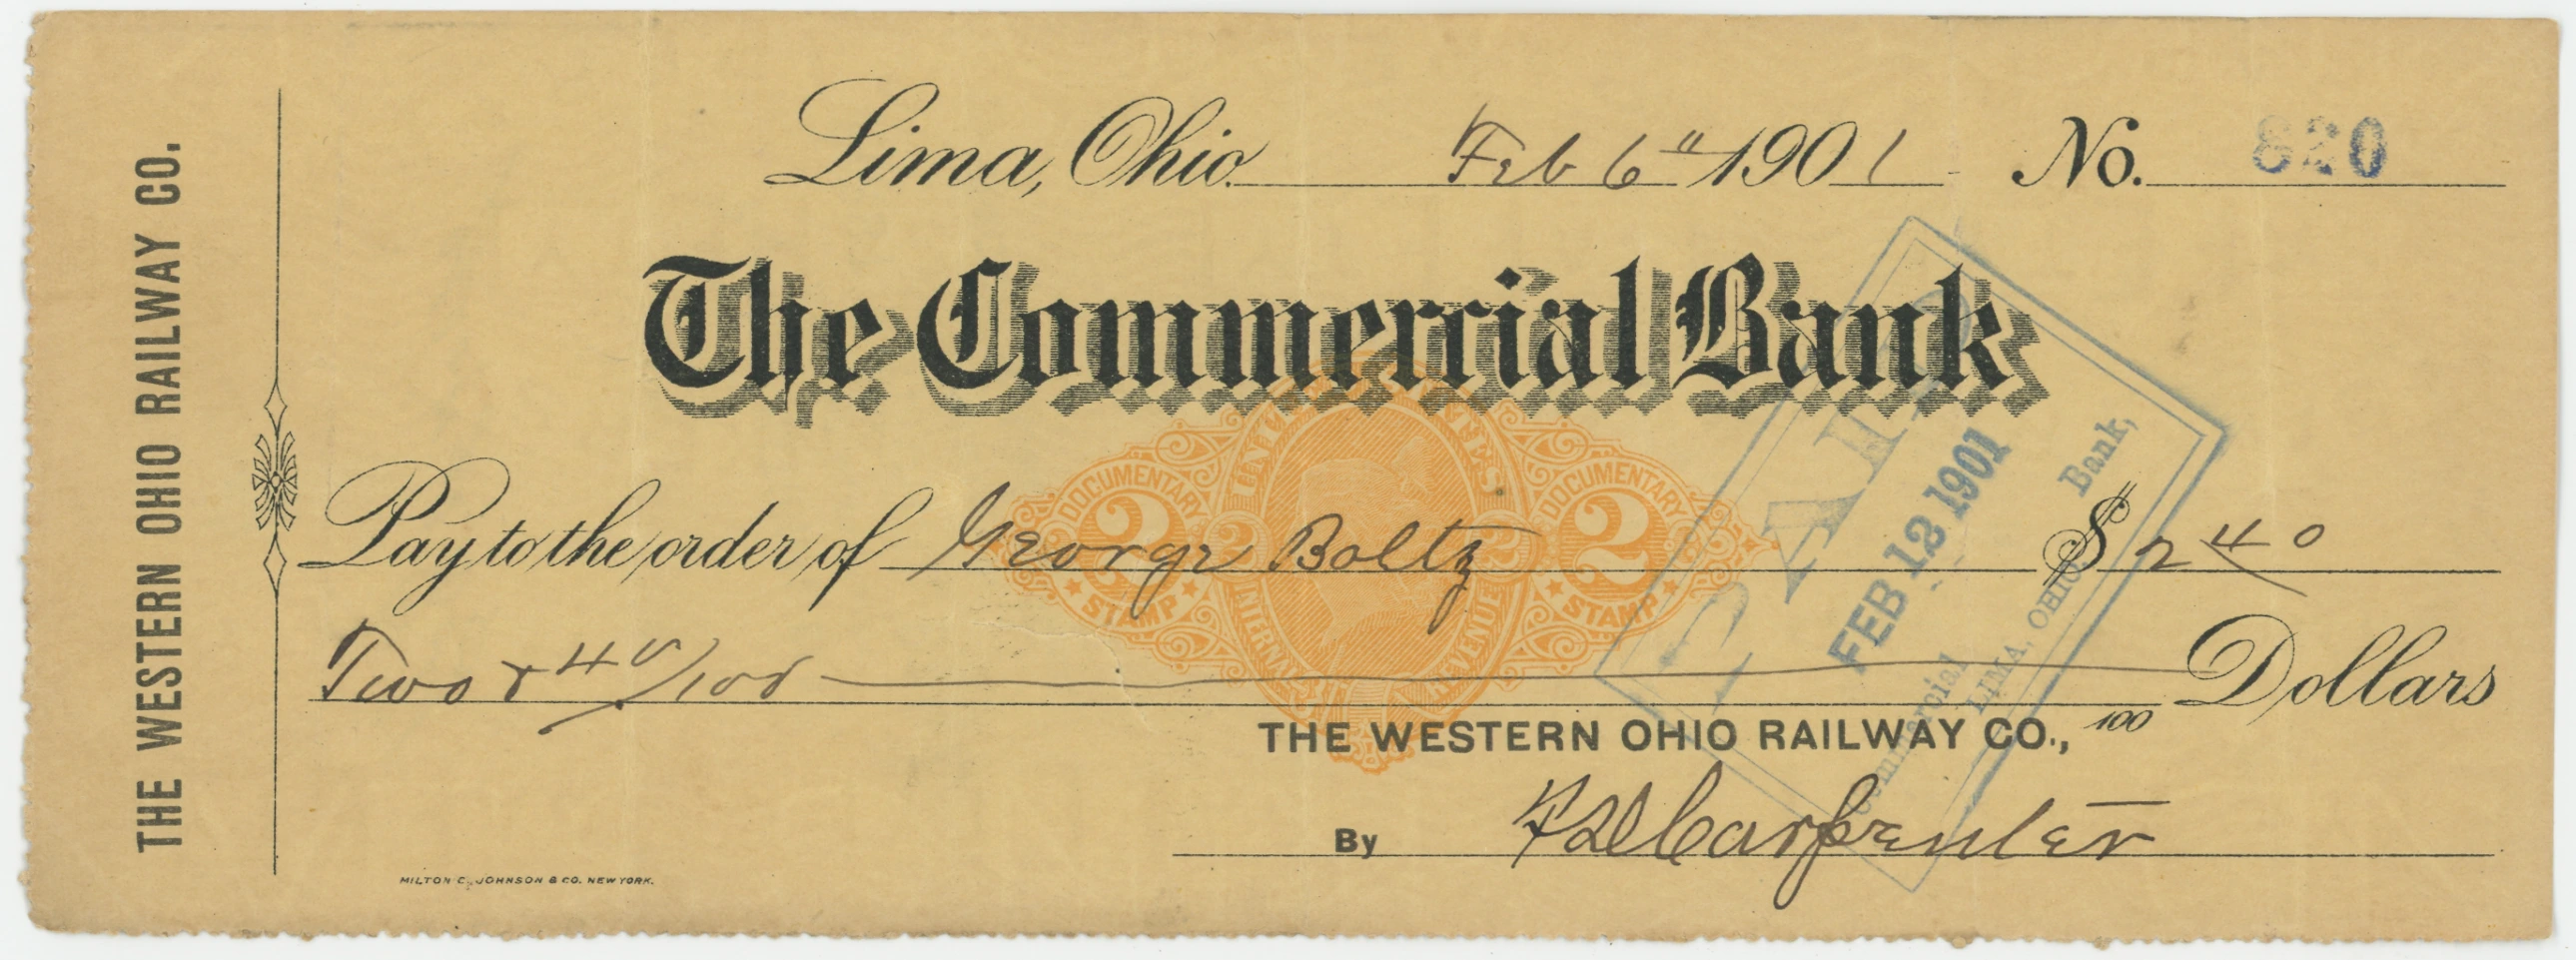 THE WESTERN OHIO RAILWAY CO.
Lima, Ohio. Feb 6" 1901 No. 820
The Commercial Bank
Pay to the order of George Boltz $ 2 40
Two & 40/100 Dollars
100
THE WESTERN OHIO RAILWAY CO.,
By F D Carpenter
MILTON C. JOHNSON & CO. NEW YORK.
UNITED STATES
INTERNAL REVENUE
DOCUMENTARY 2 STAMP
DOCUMENTARY 2 STAMP
2 2
PAID
FEB 12 1901
Commercial Bank,
LIMA, OHIO.